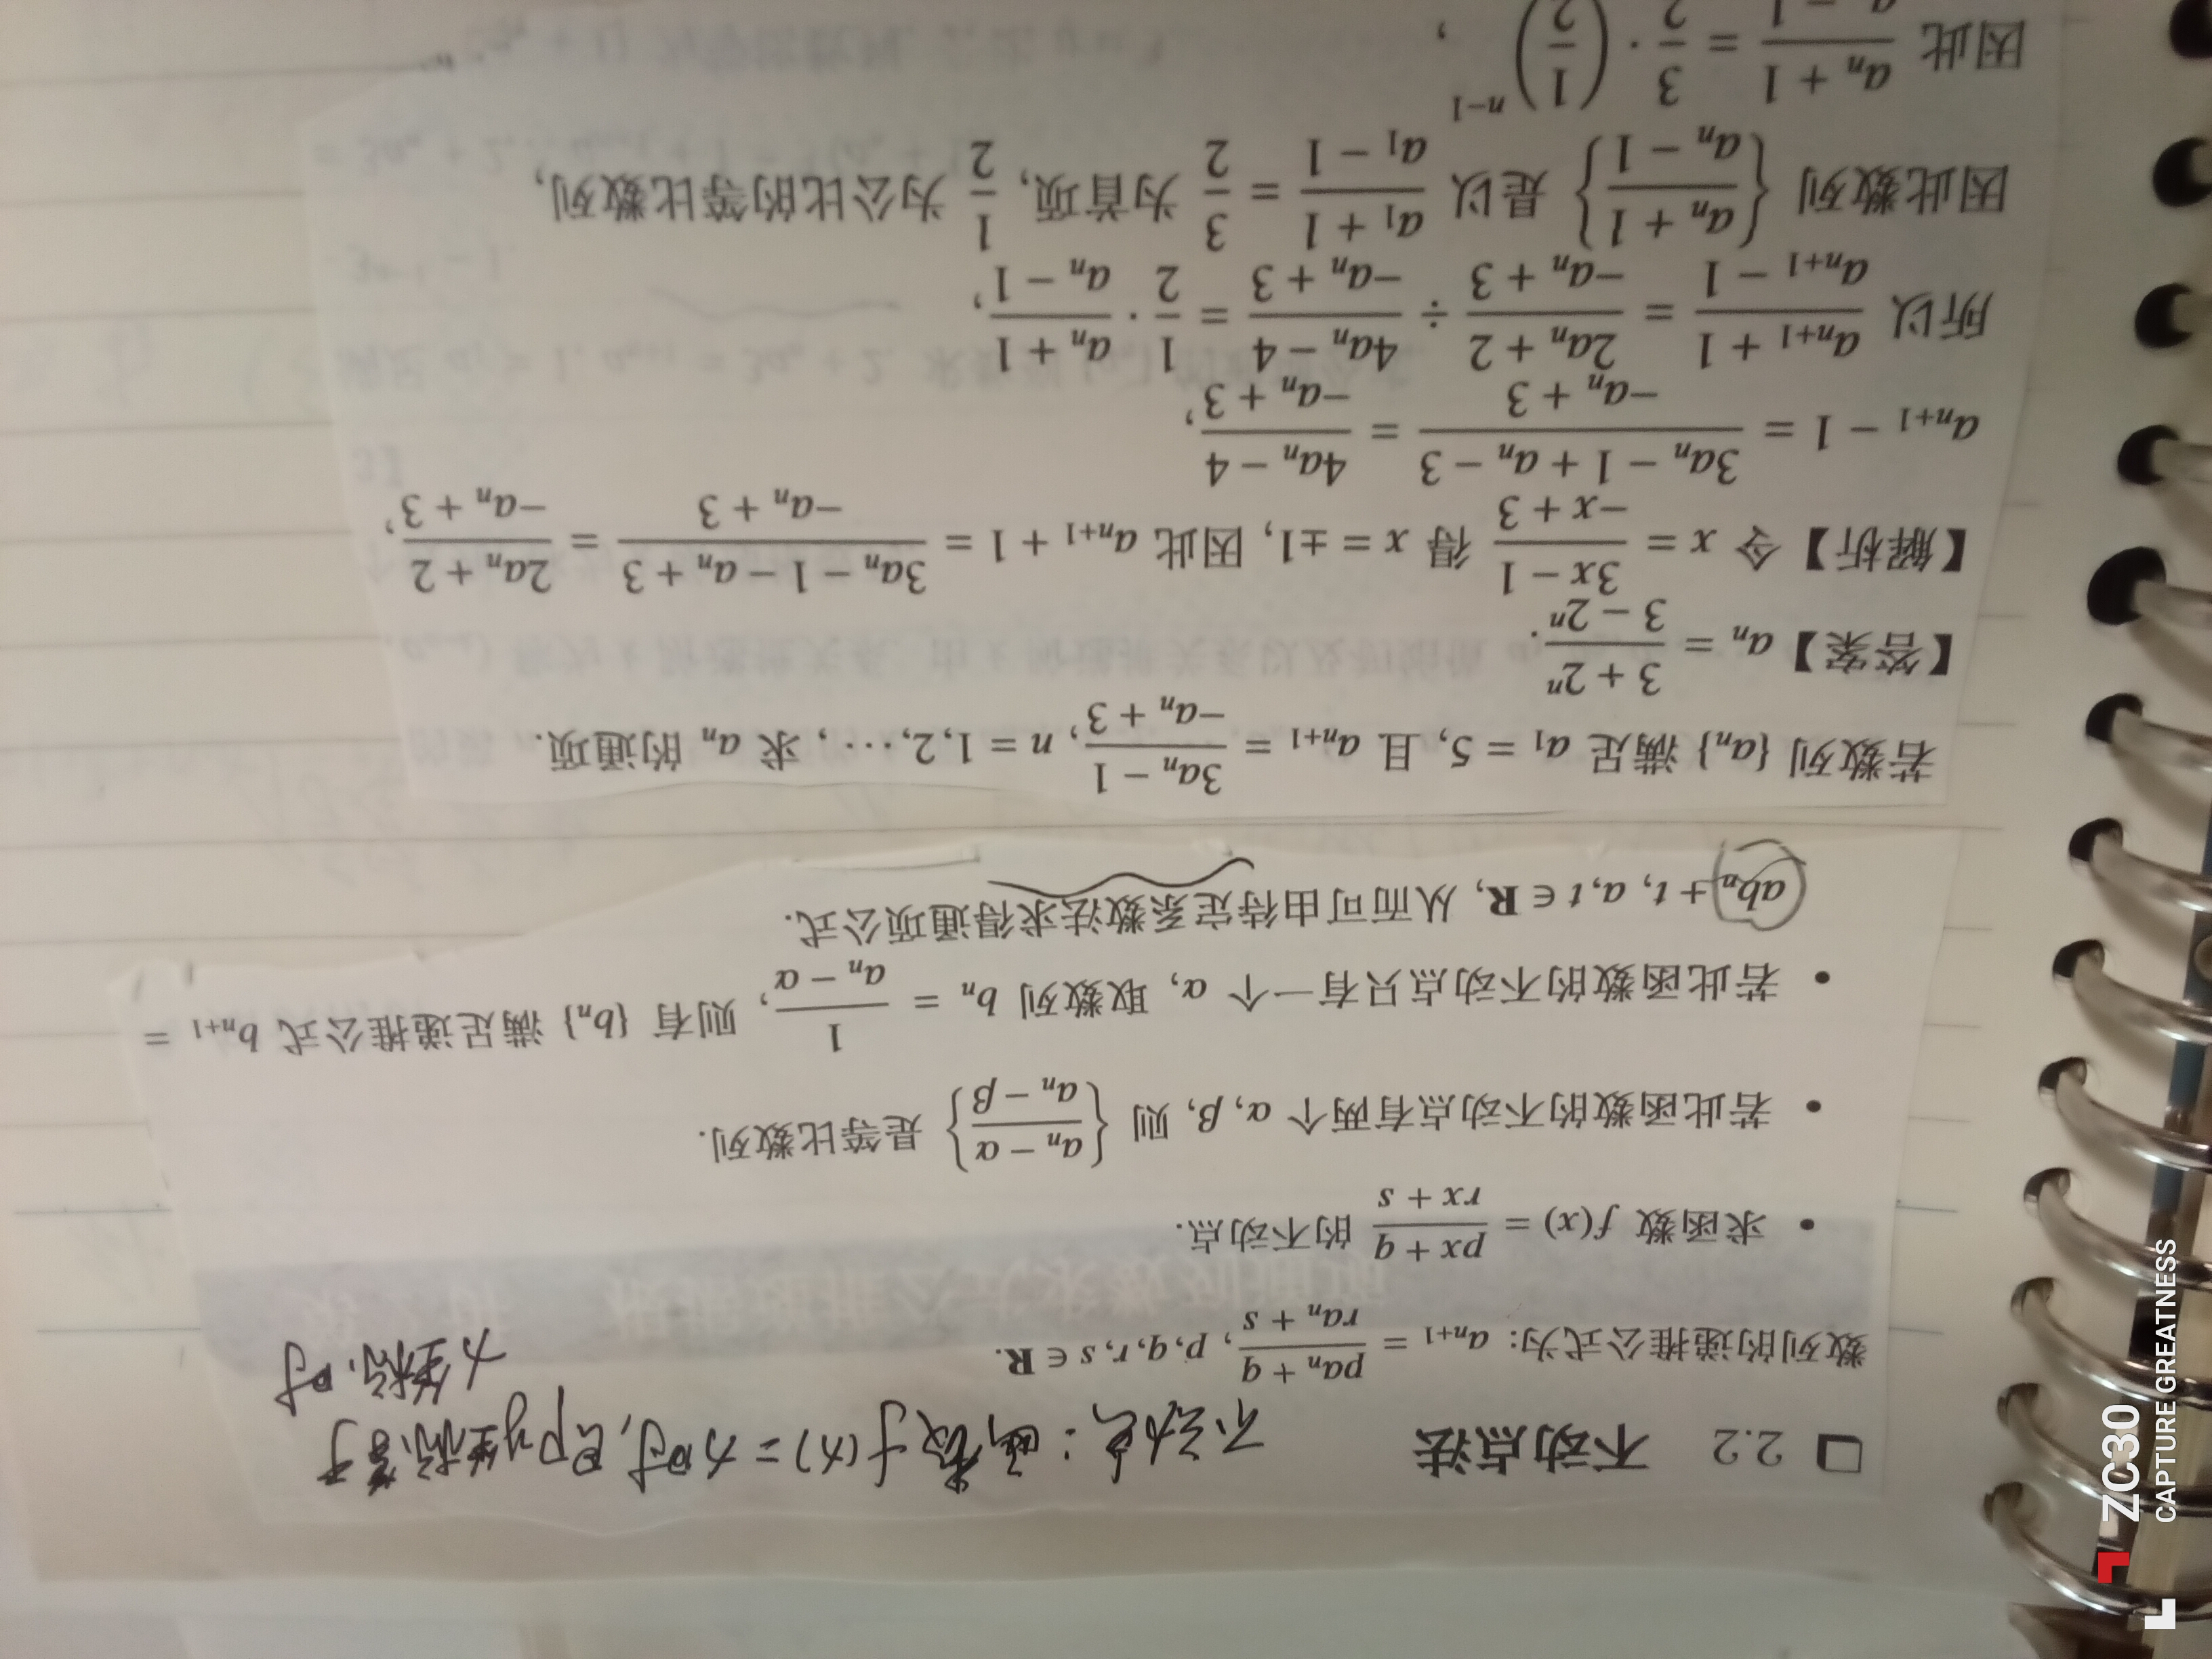 □ 2.2 不动点法 不动点：函数f(x)=x时,即y坐标等于
x坐标.时
数列的递推公式为：a_{n+1} = \frac{pa_n + q}{ra_n + s}, p,q,r,s ∈ R.
• 求函数 f(x) = \frac{px + q}{rx + s} 的不动点.
• 若此函数的不动点有两个 α, β, 则 {\frac{a_n − α}{a_n − β}} 是等比数列.
• 若此函数的不动点只有一个 α, 取数列 b_n = \frac{1}{a_n − α}, 则有 {b_n} 满足递推公式 b_{n+1} =
ab_n + t, a,t ∈ R, 从而可由待定系数法求得通项公式.
若数列 {a_n} 满足 a_1 = 5, 且 a_{n+1} = \frac{3a_n − 1}{−a_n + 3}, n = 1,2,⋯, 求 a_n 的通项.
【答案】a_n = \frac{3 + 2^n}{3 − 2^n}.
【解析】令 x = \frac{3x − 1}{−x + 3} 得 x = ±1, 因此 a_{n+1} + 1 = \frac{3a_n − 1 − a_n + 3}{−a_n + 3} = \frac{2a_n + 2}{−a_n + 3},
a_{n+1} − 1 = \frac{3a_n − 1 + a_n − 3}{−a_n + 3} = \frac{4a_n − 4}{−a_n + 3},
所以 \frac{a_{n+1} + 1}{a_{n+1} − 1} = \frac{2a_n + 2}{−a_n + 3} ÷ \frac{4a_n − 4}{−a_n + 3} = \frac{1}{2} · \frac{a_n + 1}{a_n − 1},
因此数列 {\frac{a_n + 1}{a_n − 1}} 是以 \frac{a_1 + 1}{a_1 − 1} = \frac{3}{2} 为首项, \frac{1}{2} 为公比的等比数列,
因此 \frac{a_n + 1}{a_n − 1} = \frac{3}{2} · (\frac{1}{2})^{n−1},
ZC30
CAPTURE GREATNESS